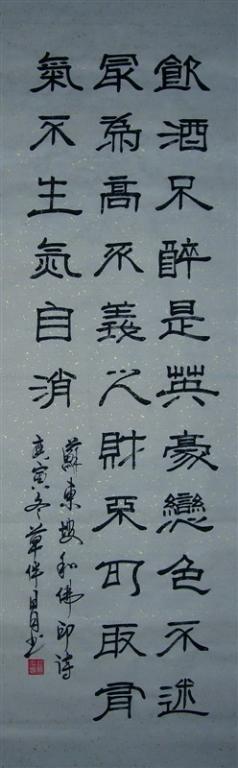 飲酒不醉是英豪戀色不迷
最為高不義之財不可取有
氣不生氣自消
蘇東坡和佛印詩
庚寅冬草月书